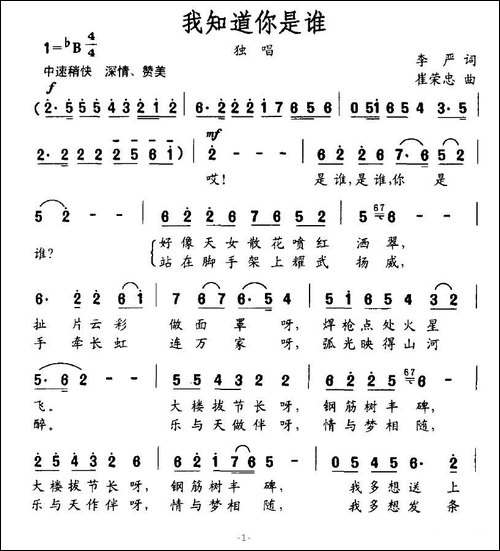 我知道你是谁
1=♭B 4/4
独唱
李严 词
中速稍快 深情、赞美
崔荣忠 曲
f
(2·5 5543212 | 6·2 221765 | 05165405
mf
2·2 12256 1) | 2 - - | 6 2 2 6 7·6 5 2
哎! 是谁,是谁,你是
5 2 - - | 6 2 2 6 7 6 5 2 | 5 67 6·8 - -
谁? 好像天女散花喷红 洒翠,
站在脚手架上耀武 扬威,
6·2 2 6 1 | 7 6 7 6·5 4 | 5 1 6 5 4 3 2
扯片云彩 做面罩呀, 焊枪点处火星
手牵长虹 连万家呀, 弧光映得山河
5·6 2 - - | 5 5 4 3 4 5 | 2 2 1 2 5 67 6
飞。 大楼拔节长呀, 钢筋树丰碑,
醉。 乐与天做伴呀, 情与梦相随,
2 5 4 5 4 5 | 6 2 1 2 7 6 5 | 0 5 4 5 6·
大楼拔节长呀, 钢筋树丰碑, 我多想送上
乐与天作伴呀, 情与梦相随, 我多想发条
-1-